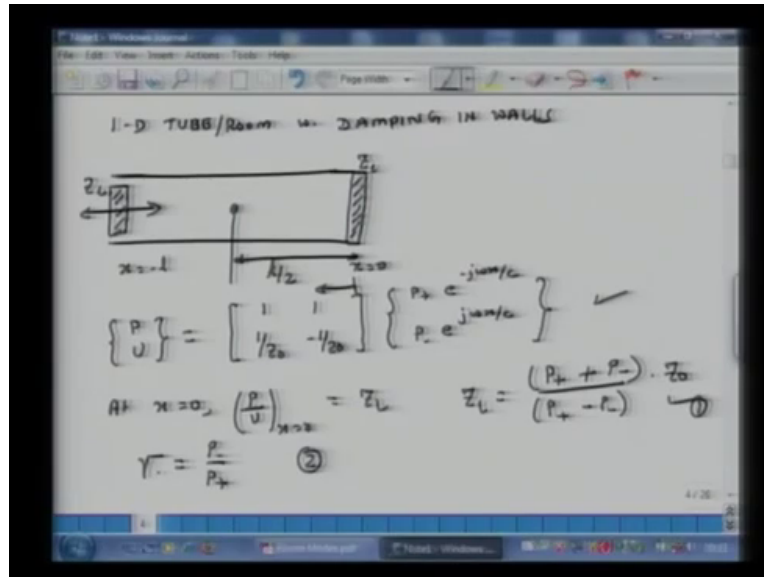 Note1 - Windows Journal
File Edit View Insert Actions Tools Help
Page Width
1-D TUBE/Room w. DAMPING IN WALLS
Z_L
Z_L
x=-l
l/2
x=0
{P U} = [1 1 1/Z0 -1/Z0] {P+ e^-jωx/c P- e^jωx/c} ✓
At x=0, (P/U)x=0 = Z_L Z_L = (P+ + P-)/(P+ - P-) . Z0 ①
r = P-/P+ ②
4 / 20